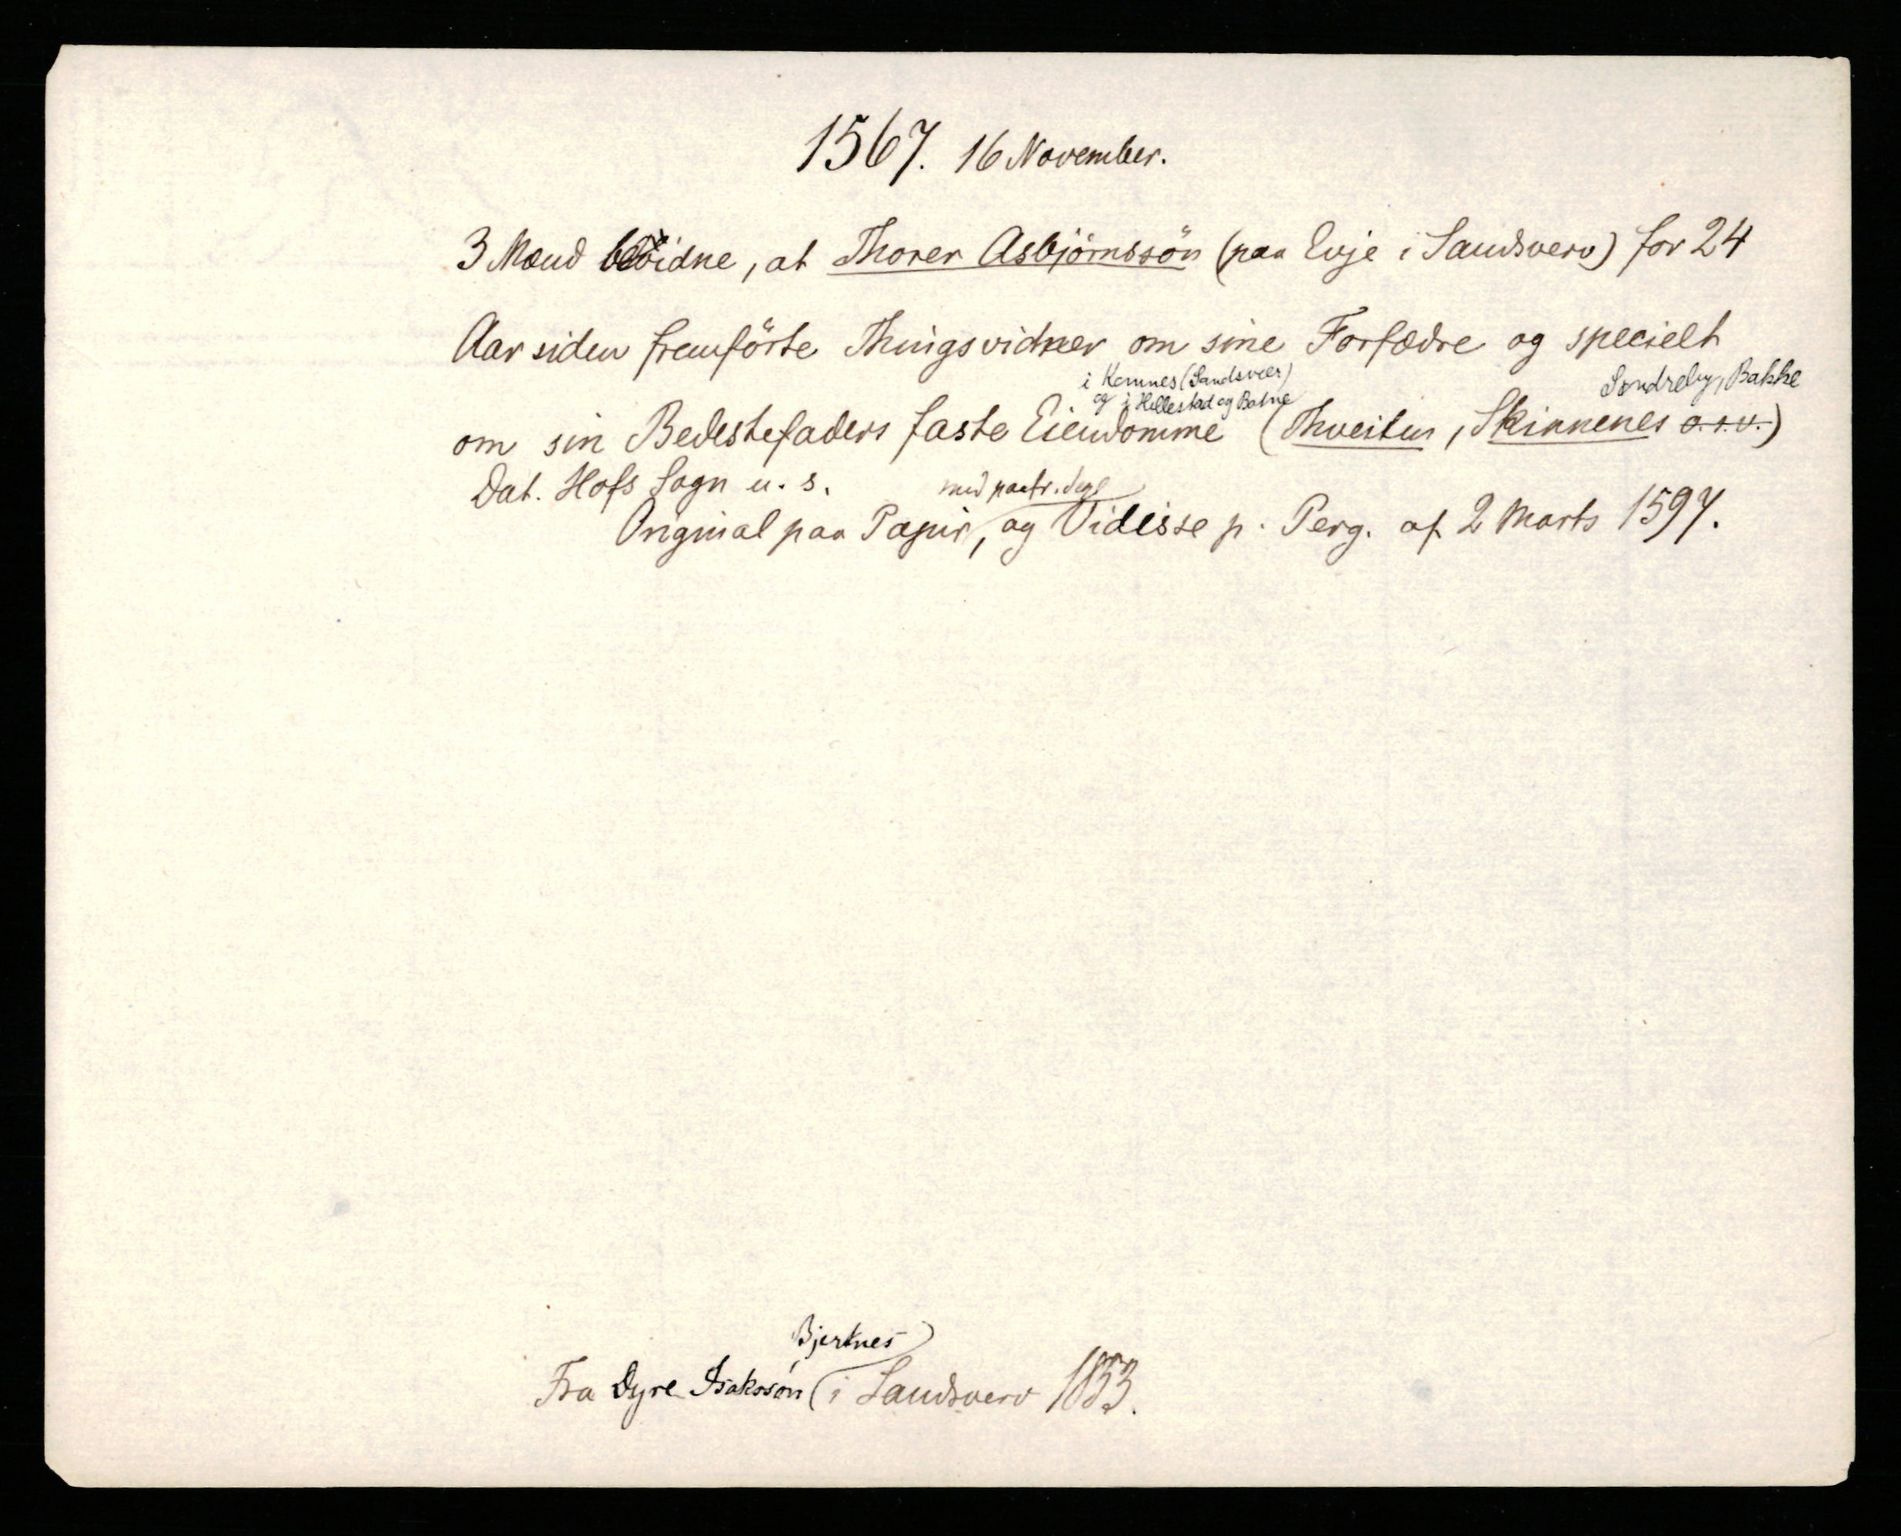 1567. 16 November.
3 Mænd bevidne, at Thorer Asbjörnssön (paa Evje i Sandsverv) for 24
Aar siden fremförte Thingsvidner om sine Forfædre og specielt
i Komnes (Sandsver) Sondreby, Bakke
og i Hillestad og Botne
om sin Bedestefaders faste Eiendomme (Thveiten, Skinnenes o.s.v.)
Dat. Hofs Sogn u. s.
med paatr. Segl
Original paa Papir, og Vidisse p. Perg. af 2 Marts 1597.
Bjertnes
Fra Dyre Isakssön i Sandsverv 1853.